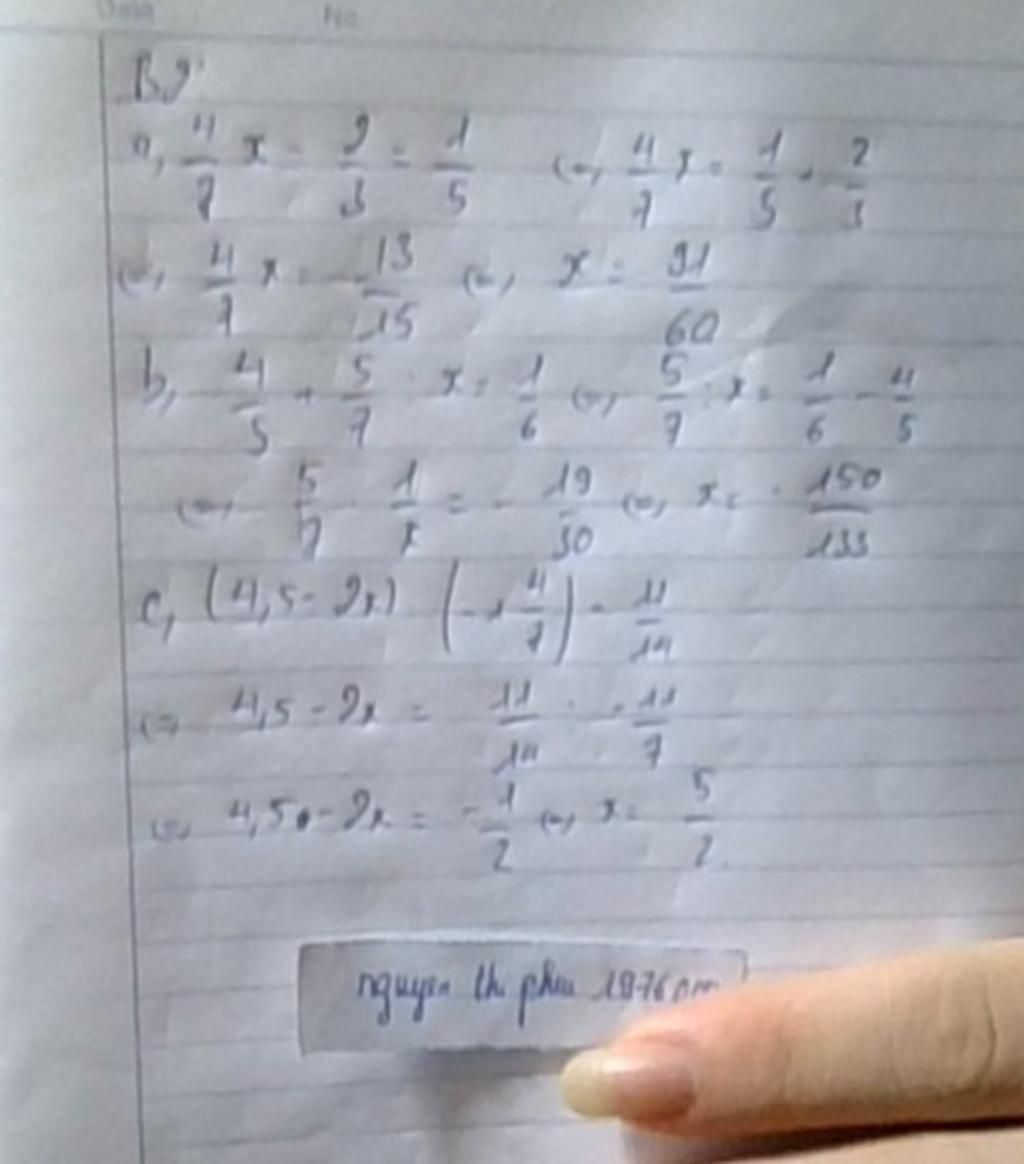 Date No
B2
a, 4/7 x - 2/3 = 1/5 (=) 4/7 x = 1/5 + 2/3
(=) 4/7 x = 13/15 (=) x = 91/60
b, 4/5 + 5/7 : x = 1/6 (=) 5/7 : x = 1/6 - 4/5
(=) 5/7 . 1/x = - 19/30 (=) x = - 150/133
c, (4,5 - 2x) (-1 4/7) = 11/14
(=) 4,5 - 2x = 11/14 : - 11/7
(=) 4,5 - 2x = - 1/2 (=) x = 5/2
nguyen thi